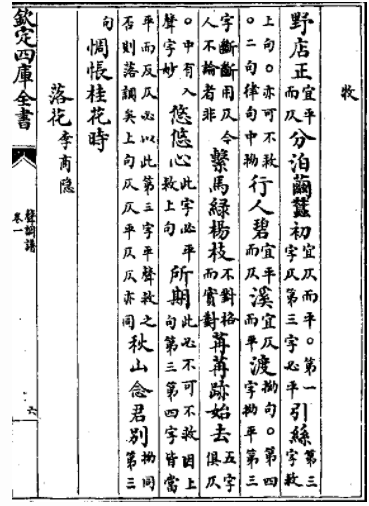 牧
野店正宜平而仄分泊繭蠶初宜仄而平。第一字仄第三字必平引絲第三字救
上句。亦可不救。二句律句中拗行人碧宜平而仄溪宜仄而平渡拗句。第四字拗平第三
字斷斷用仄今人不論者非繫馬綠楊枝不對格而實對苒苒跡始去五字俱仄
。中有入聲字妙悠悠心此字必平救上句所期此必不可不救因上句第三第四字皆當
平而反仄必以此第三字平聲救之否則落調矣上句仄仄平仄仄亦同秋山念君別拗同第三
句惆悵桂花時
落花李商隱
欽定四庫全書
聲調譜
卷一
六